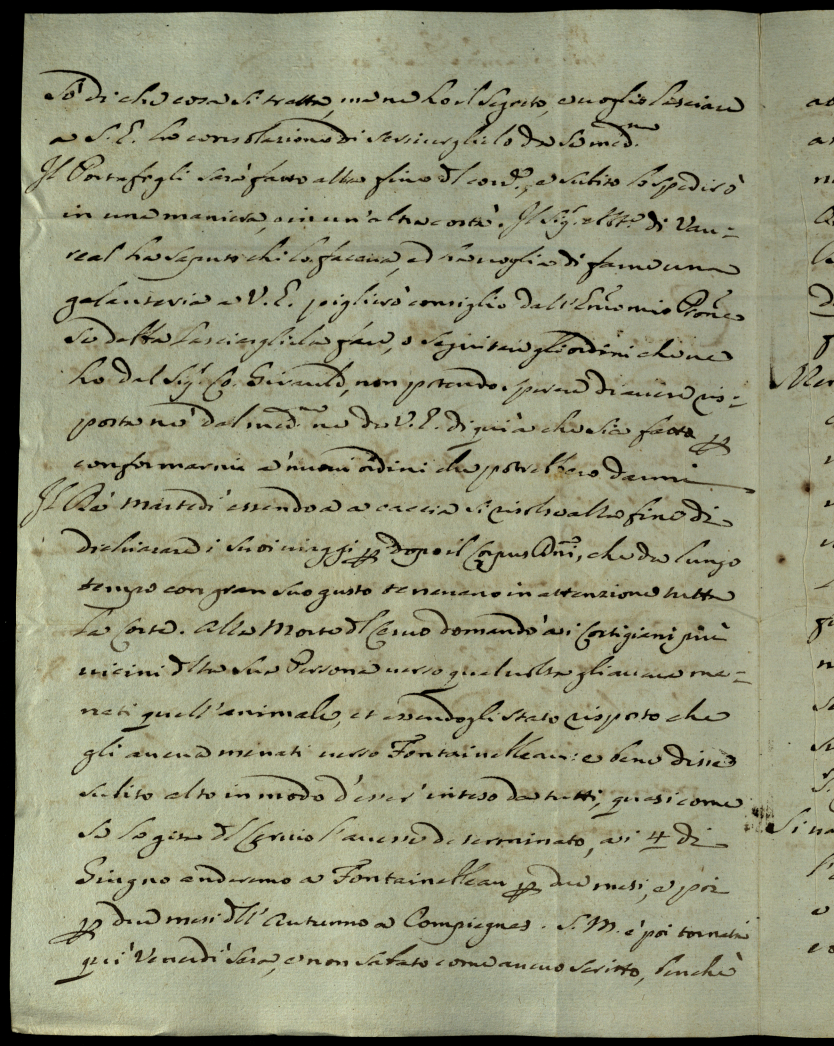 Sò di che cosa si tratta, ma ne ho il segreto, e voglio lasciare
a S. E. la consolazione di scriverglielo da se med.mo
Il Portafogli sarà fatto alla fine dl cor.e, e subito lo spedirò
in una maniera, o in un'altra costà. Il Sig.r Abb.e di Vau-
real ha saputo chi lo faceva, ed ha voglia di farne una
galanteria a V. E. piglierò consiglio dall'Em.mo mio Prone
se debba lasciargliela fare, o seguitare gli ordini che ne
ho dal Sig.r Co. Girauld, non potendo sperare di avere ris-
posta nè dal med.mo nè da V. E. di quì a che sia fatto p
conformarmi a' nuovi ordini che potrebbero darmi
Il Rè Martedì essendo a caccia si risolse alla fine di
dichiarare i suoi viaggi p dopo il Corpus Dni, che da lungo
tempo con gran suo gusto tenevano in attenzione tutta
la Corte. Alla Morte dl Cervo domandò a i Cortigiani più
vicini dlla sua Persona verso qual volta gli aveva me-
nati quell'animale, et essendogli stato risposto che
gli aveva menati verso Fontainebleau: e bene disse
subito alto in modo d'esser' inteso da tutti, quasi come
se la gita dl Cervio l'avesse determinato, a i 4 di
Giugno anderemo a Fontainebleau p due mesi, e poi
p due mesi dll'Autunno a Compiegnes. S. M. è poi tornata
quì Venerdì sera, e non sabato come avevo scritto, benchè